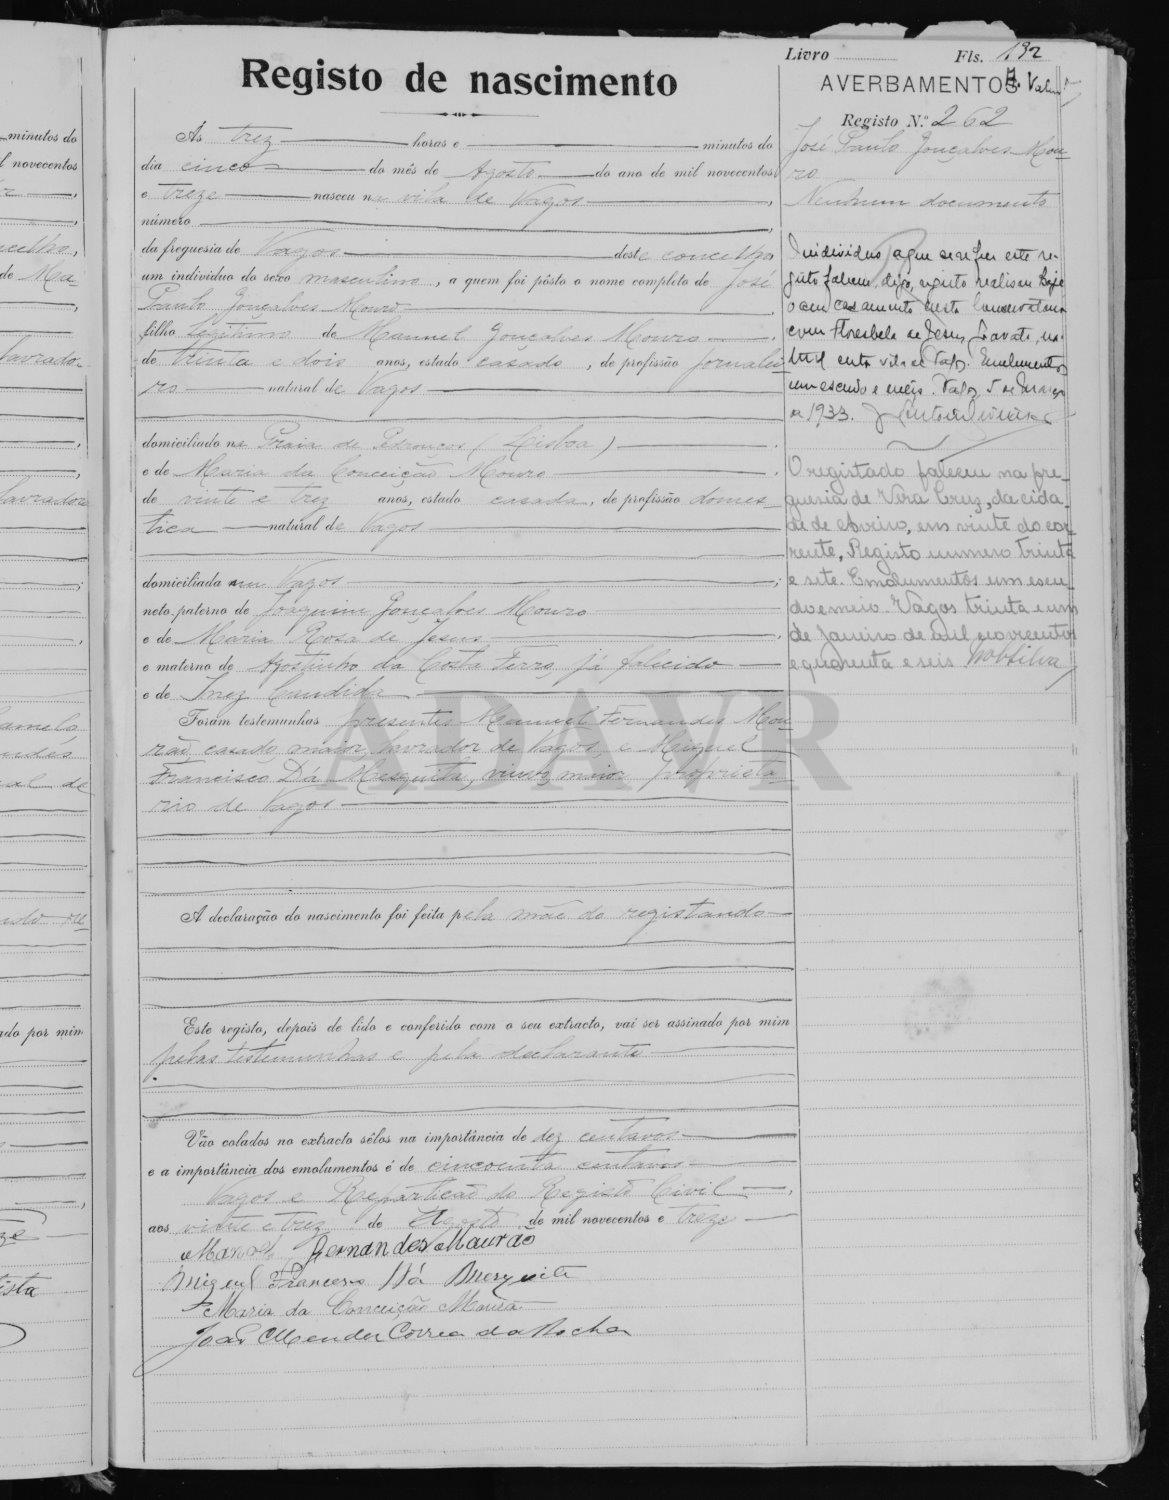 Livro Fls. 132
Registo de nascimento
AVERBAMENTOS
Registo N.º 262
José Paulo Gonçalves Mou-
ro
Nenhum documento
Às trez horas e minutos do
dia cinco do mês de Agosto do ano de mil novecentos
e treze nasceu na vila de Vagos,
número
da freguesia de Vagos deste concelho
um individuo do sexo masculino, a quem foi pôsto o nome completo de José
Paulo Gonçalves Mouro
filho legitimo de Manuel Gonçalves Mouro
de trinta e dois anos, estado casado, de profissão jornalei
ro natural de Vagos
domiciliado na Praia de Pedrouços (Lisboa)
e de Maria da Conceição Mouro
de vinte e trez anos, estado casada, de profissão domes-
tica natural de Vagos
domiciliada em Vagos;
neto paterno de Joaquim Gonçalves Mouro
e de Maria Rosa de Jesus,
e materno de Agostinho da Costa Ferro, já falecido
e de Inez Candida
Foram testemunhas presentes Manuel Fernandes Mou
rão, casado, maior, lavrador de Vagos, e Miguel
Francisco Dá Mesquita, viuvo, maior proprieta
rio de Vagos
A declaração do nascimento foi feita pela mãe do registando
Este registo, depois de lido e conferido com o seu extracto, vai ser assinado por mim
pelas testemunhas e pela declarante
Vão colados no extracto sêlos na importância de dez centavos
e a importância dos emolumentos é de cincoenta centavos
Vagos e Repartição do Registo Civil,
aos vinte e trez de Agosto de mil novecentos e treze
Manoel Fernandes Maurão
Miguel Francisco Dá Mesquita
Maria da Conceição Moura
João Mendes Correa da Rocha
O individuo a que se refere este re-
gisto digo, registo realisou hoje
o seu casamento nesta Conservatoria
com Florbela de Jesus na-
tural esta vila de Vagos. Emolumentos
um escudo e meio. Vagos 5 de Março
de 1933.
O registado faleceu na fre-
guesia de Vera Cruz, da cida-
de de Aveiro, em vinte do cor-
rente, Registo numero trinta
e sete. Emolumentos um escu-
do e meio. Vagos trinta e um
de Janeiro de mil novecentos
e quarenta e seis
ADAVR
minutos do
l novecentos
celho,
de Ma
lavrador
lavradora
amelo
ual de
ado por mim
ista